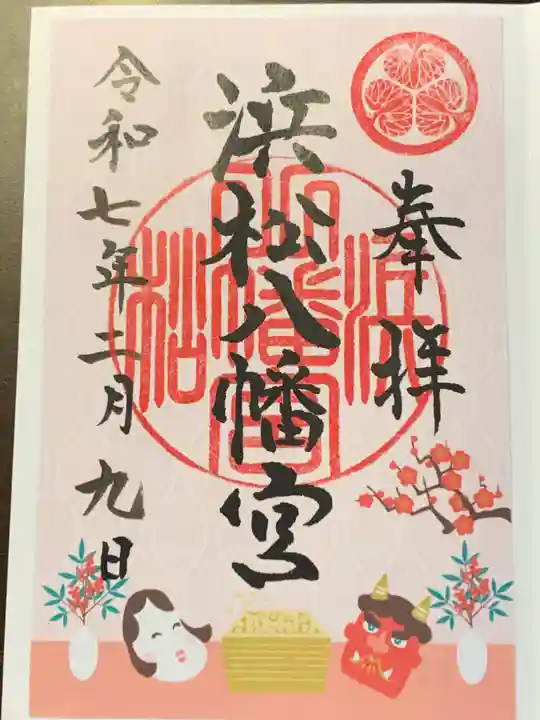 奉拝
浜松八幡宮
令和七年二月九日